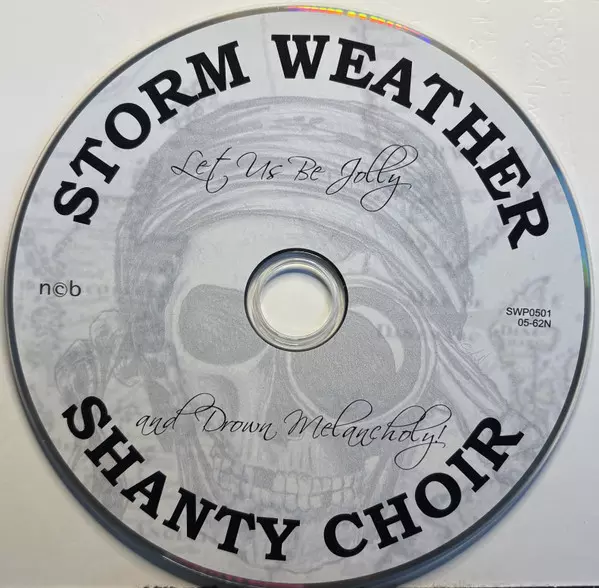 STORM WEATHER
Let Us Be Jolly
n©b
SWP0501
05-62N
and Drown Melancholy!
SHANTY CHOIR